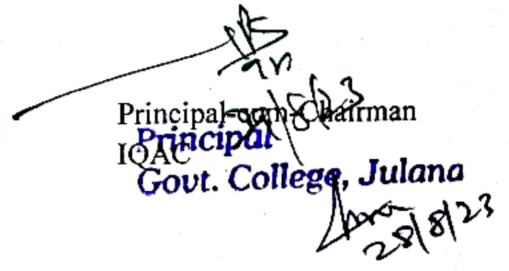 Principal-cum-Chairman
IQAC
Principal
Govt. College, Julana
28/8/23